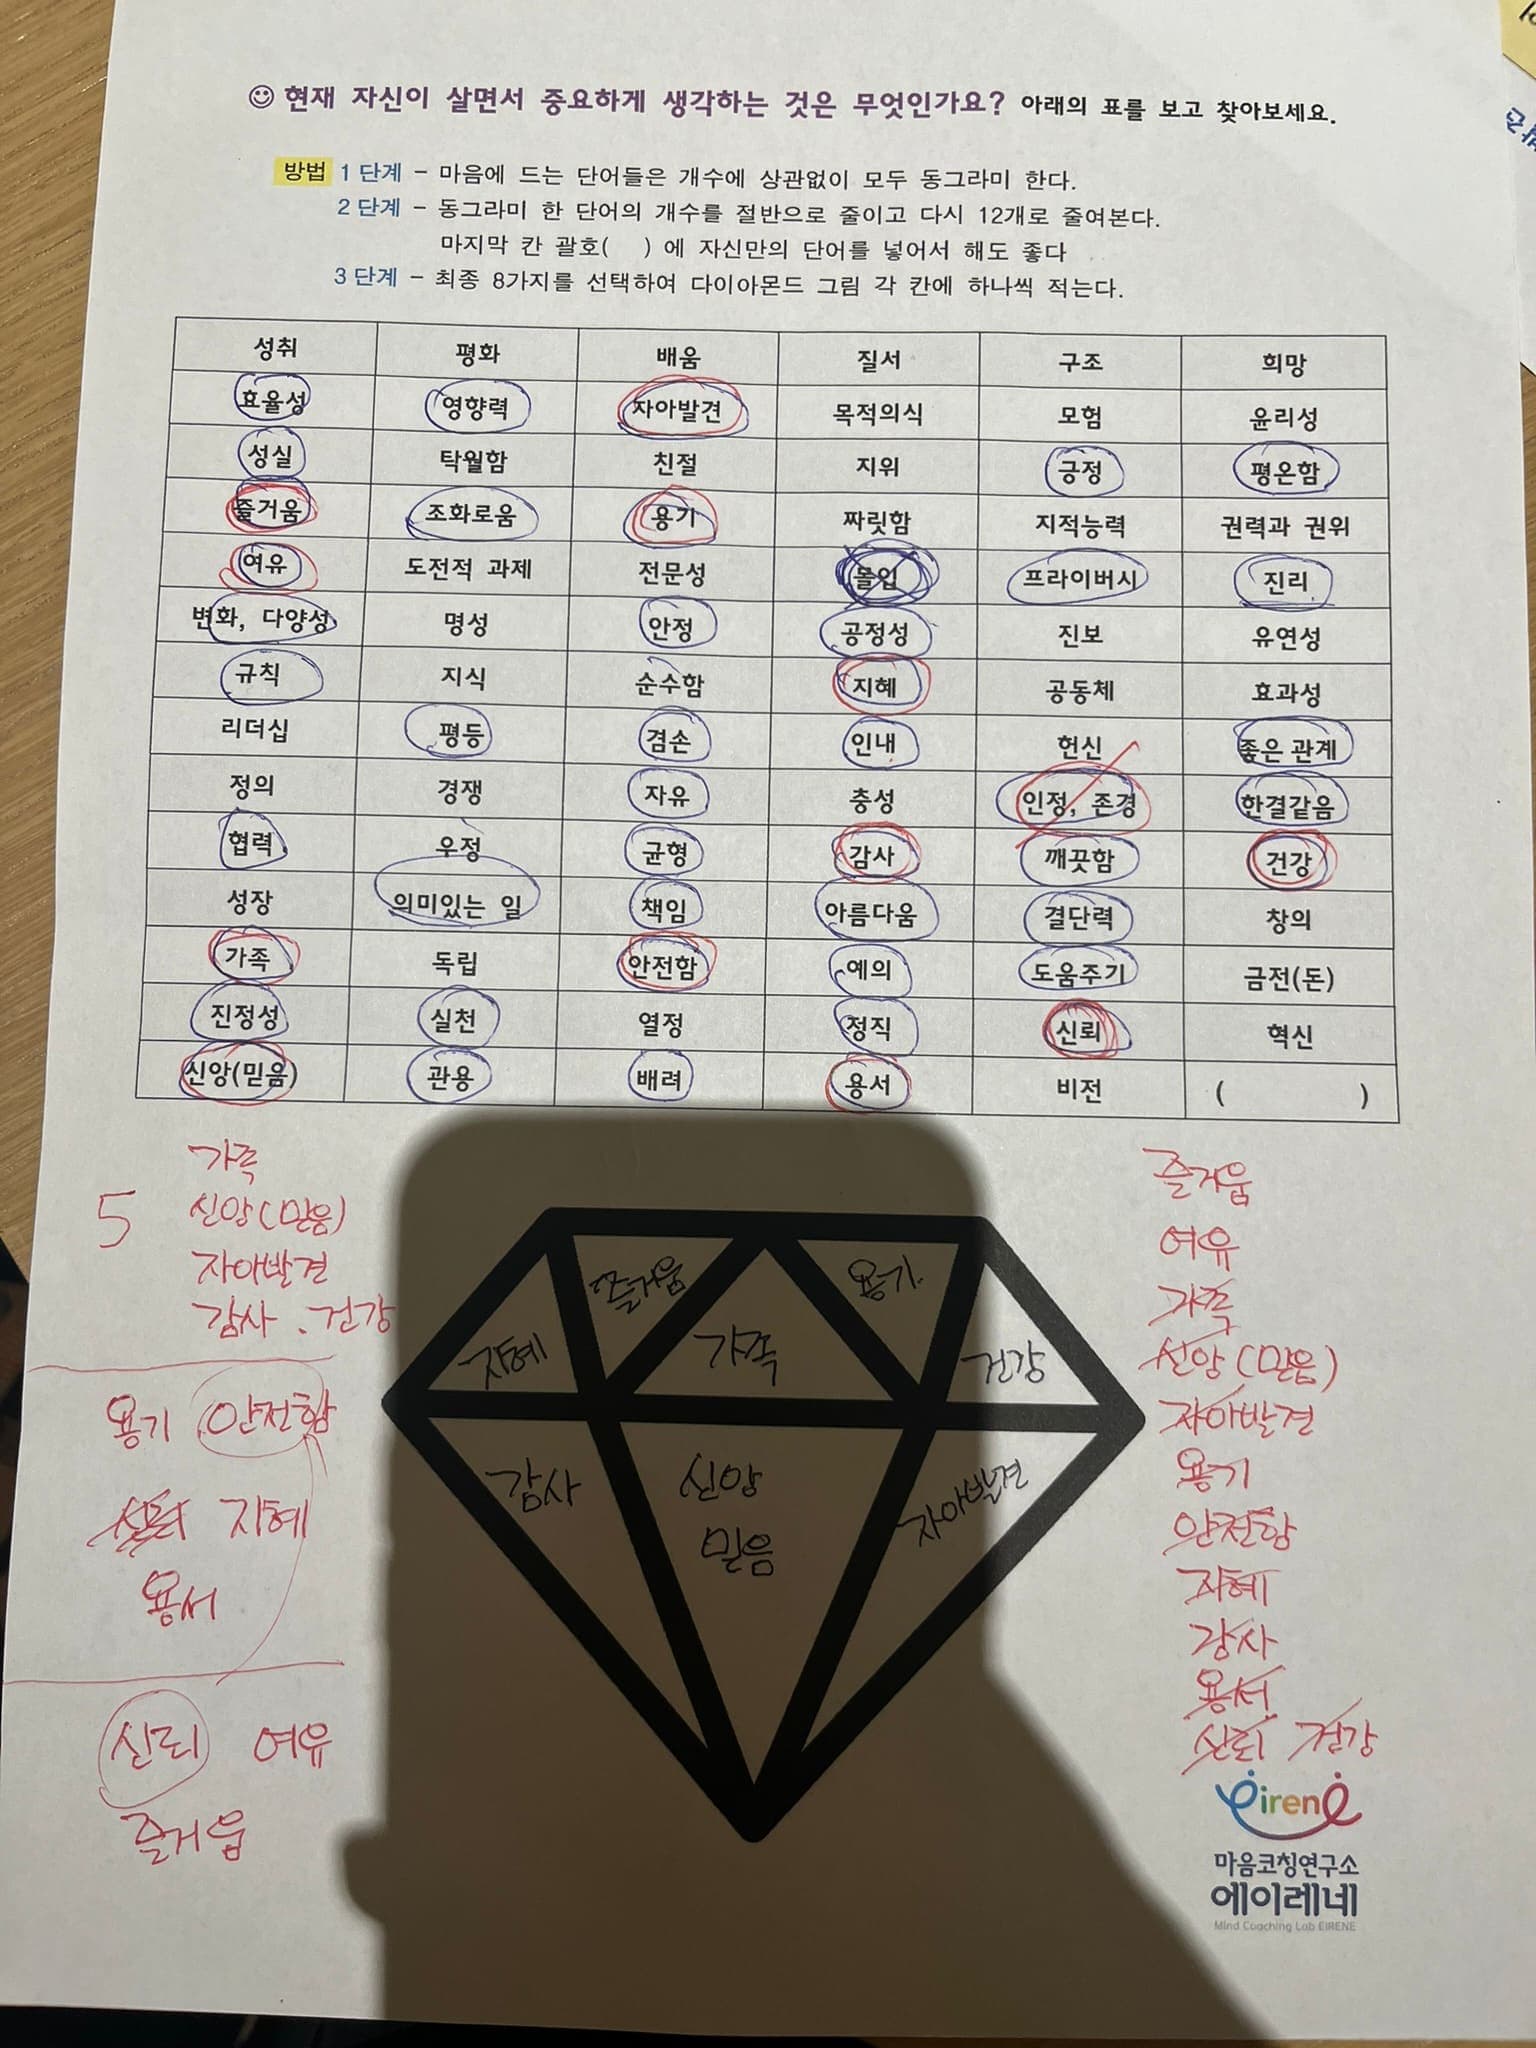 현재 자신이 살면서 중요하게 생각하는 것은 무엇인가요? 아래의 표를 보고 찾아보세요.
방법 1단계 - 마음에 드는 단어들은 개수에 상관없이 모두 동그라미 한다.
2단계 - 동그라미 한 단어의 개수를 절반으로 줄이고 다시 12개로 줄여본다.
마지막 칸 괄호( ) 에 자신만의 단어를 넣어서 해도 좋다
3단계 - 최종 8가지를 선택하여 다이아몬드 그림 각 칸에 하나씩 적는다.
성취 평화 배움 질서 구조 희망
효율성 영향력 자아발견 목적의식 모험 윤리성
성실 탁월함 친절 지위 긍정 평온함
즐거움 조화로움 용기 짜릿함 지적능력 권력과 권위
여유 도전적 과제 전문성 몰입 프라이버시 진리
변화, 다양성 명성 안정 공정성 진보 유연성
규칙 지식 순수함 지혜 공동체 효과성
리더십 평등 겸손 인내 헌신 좋은 관계
정의 경쟁 자유 충성 인정, 존경 한결같음
협력 우정 균형 감사 깨끗함 건강
성장 의미있는 일 책임 아름다움 결단력 창의
가족 독립 안전함 예의 도움주기 금전(돈)
진정성 실천 열정 정직 신뢰 혁신
신앙(믿음) 관용 배려 용서 비전 ( )
가족
5 신앙(믿음)
자아발견
감사 . 건강
용기 안전함
신뢰 지혜
용서
신뢰 여유
즐거움
즐거움 용기
지혜 가족 건강
감사 신앙 자아발견
믿음
즐거움
여유
가족
신앙(믿음)
자아발견
용기
안전함
지혜
감사
용서
신뢰 건강
eirene
마음코칭연구소
에이레네
Mind Coaching Lab EIRENE